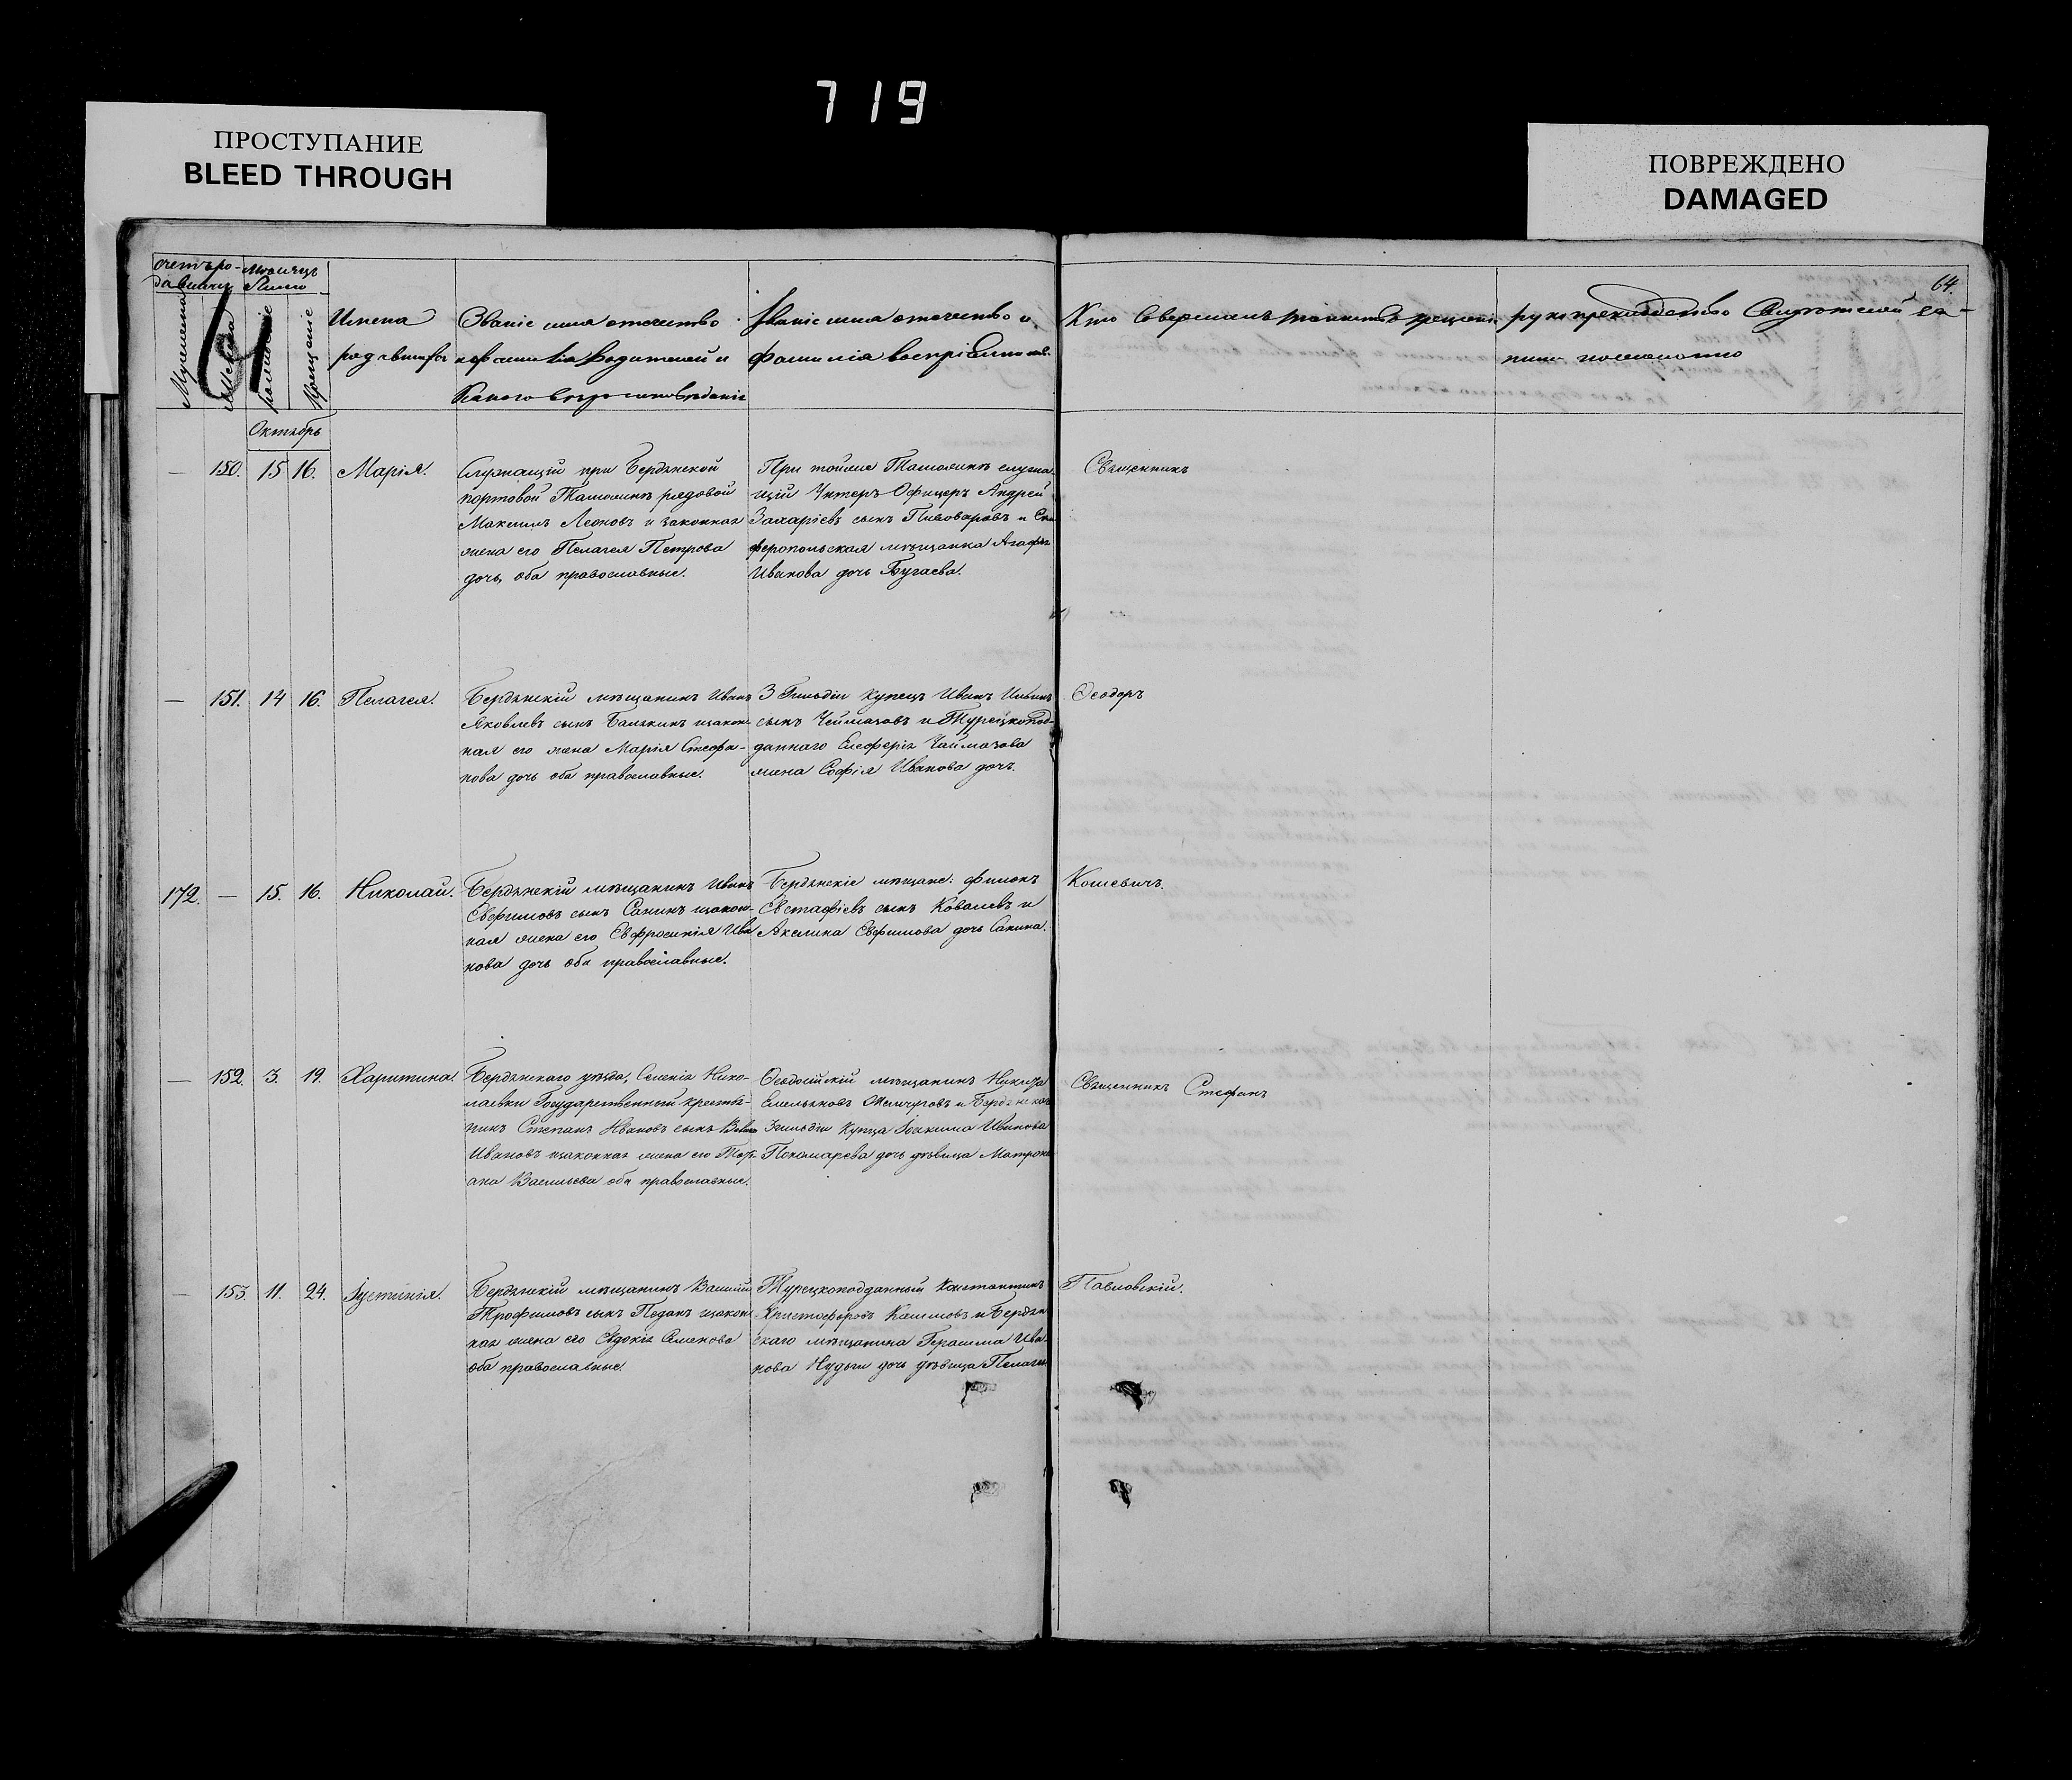 719
ПРОСТУПАНИЕ
BLEED THROUGH
ПОВРЕЖДЕНО
DAMAGED
64.
Счетъ ро-
дившихъ
Мѣсяцъ
Число
Мужеска
Женска
рожденіе
Крещеніе
Имена
родившихся
Званіе имя отечество
и фамилія Родителей и
Какого вѣроисповѣданія
Званіе имя отечество и
фамилія воспріемниковъ
Кто совершалъ таинство крещенія
рукоприкладство свидѣтелей за-
писи по желанію
Октябрь
— 150. 15 16. Марія.
Служащій при Бердянской
портовой Таможнѣ рядовой
Максимъ Леоновъ и законная
жена его Пелагея Петрова
дочь, оба православные.
При тойже Таможнѣ служа-
щій Унтеръ Офицеръ Андрей
Захаріевъ сынъ Пивоваровъ и Сим
феропольская мѣщанка Агафія
Иванова дочь Бугаева.
Священникъ
— 151. 14 16. Пелагея.
Бердянскій мѣщанинъ Иванъ
Яковлевъ сынъ Балякинъ изакон-
ная его жена Марія Стефа-
нова дочь оба православные.
3 Гильдіи купецъ Иванъ Ильинъ
сынъ Чеймазовъ и Турецкопод-
даннаго Елеферія Чаймазова
жена Софія Иванова дочь.
Ѳеодоръ
172. — 15. 16. Николай.
Бердянскій мѣщанинъ Иванъ
Евфимовъ сынъ Санинъ изакон-
ная жена его Евфросинія Ива
нова дочь оба православные.
Бердянскіе мѣщане: Филонъ
Евстафіевъ сынъ Ковалевъ и
Акелина Евфимова дочь Санина.
Кошевичъ.
— 152. 3. 19. Харитина.
Бердянскаго уѣзда, Селенія Нико-
лаевки Государственный крестья-
нинъ Степанъ Ивановъ сынъ
Ивановъ изаконная жена его
Васильева оба православные.
Ѳеодосійскій мѣщанинъ Никита
Емельяновъ Жемчуговъ и Бердянскаго
3 гильдіи Купца Іоакима Иванова
Пономарева дочь дѣвица Матрона
Священникъ Стефанъ
— 153. 11. 24. Іустинія.
Бердянскій мѣщанинъ Василій
Трофимовъ сынъ Педанъ изакон
ная жена его Евдокія Семенова
оба православные.
Турецкоподданный Константинъ
Христофоровъ Калимовъ и Бердян
скаго мѣщанина Герасима Ива-
нова Нудьги дочь дѣвица Пелагея
Павловскій.